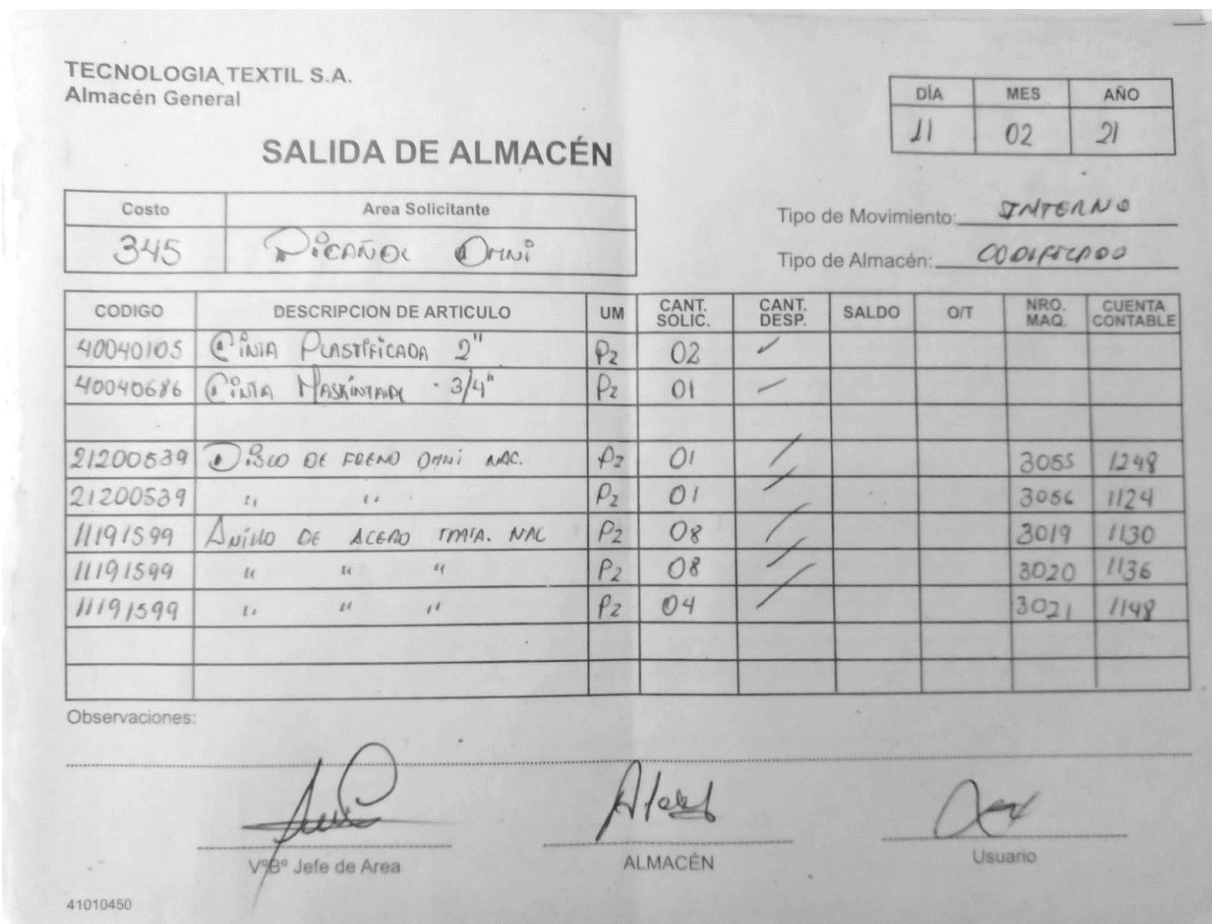 TECNOLOGIA TEXTIL S.A.
Almacén General
SALIDA DE ALMACÉN
DÍA MES AÑO
11 02 21
Costo Area Solicitante
345 Picañol Omni
Tipo de Movimiento: INTERNO
Tipo de Almacén: CODIFICADO
CODIGO DESCRIPCION DE ARTICULO UM CANT. SOLIC. CANT. DESP. SALDO O/T NRO. MAQ. CUENTA CONTABLE
40040105 Cinta Plastificada 2" Pz 02
40040686 Cinta 3/4" Pz 01
21200539 Disco DE FRENO OMNI NAC. Pz 01 3055 1248
21200539 " " Pz 01 3056 1124
11191599 Anillo DE ACERO TRATA. NAC Pz 08 3019 1130
11191599 " " " Pz 08 3020 1136
11191599 " " " Pz 04 3021 1148
Observaciones:
VºBº Jefe de Area ALMACÉN Usuario
41010450